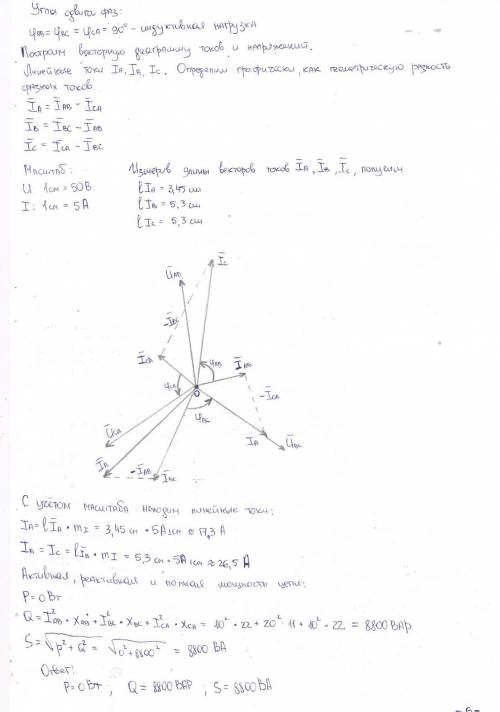 Углы сдвига фаз:
φAB = φBC = φCA = 90° - индуктивная нагрузка
Построим векторную диаграмму токов и напряжений.
Линейные токи IA, IB, IC. Определим графически, как геометрическую разность
фазных токов.
ĪA = ĪAB - ĪCA
ĪB = ĪBC - ĪAB
ĪC = ĪCA - ĪBC
Масштаб: Измерив длины векторов токов ĪA, ĪB, ĪC, получим
U: 1см = 50В lIA = 3,45 см
I: 1см = 5А lIB = 5,3 см
lIC = 5,3 см
ĪC
ŪAB
-ĪBC
ĪCA
φAB
ĪAB
φCA
-ĪCA
0
φBC
ŪCA
ĪA
ŪBC
ĪA
-ĪAB
ĪBC
С учётом масштаба находим линейные токи:
IA = lĪA • mI = 3,45 см • 5А 1см ≈ 17,3 А
IB = IC = lĪB • mI = 5,3 см • 5А 1см ≈ 26,5 А
Активная, реактивная и полная мощность цепи:
P = 0 Вт
Q = I²AB • XAB + I²BC • XBC + I²CA • XCA = 10² • 22 + 20² • 11 + 10² • 22 = 8800 ВАР
S = √P² + Q² = √0² + 8800² = 8800 ВА
Ответ:
P = 0 Вт ; Q = 8800 ВАР ; S = 8800 ВА